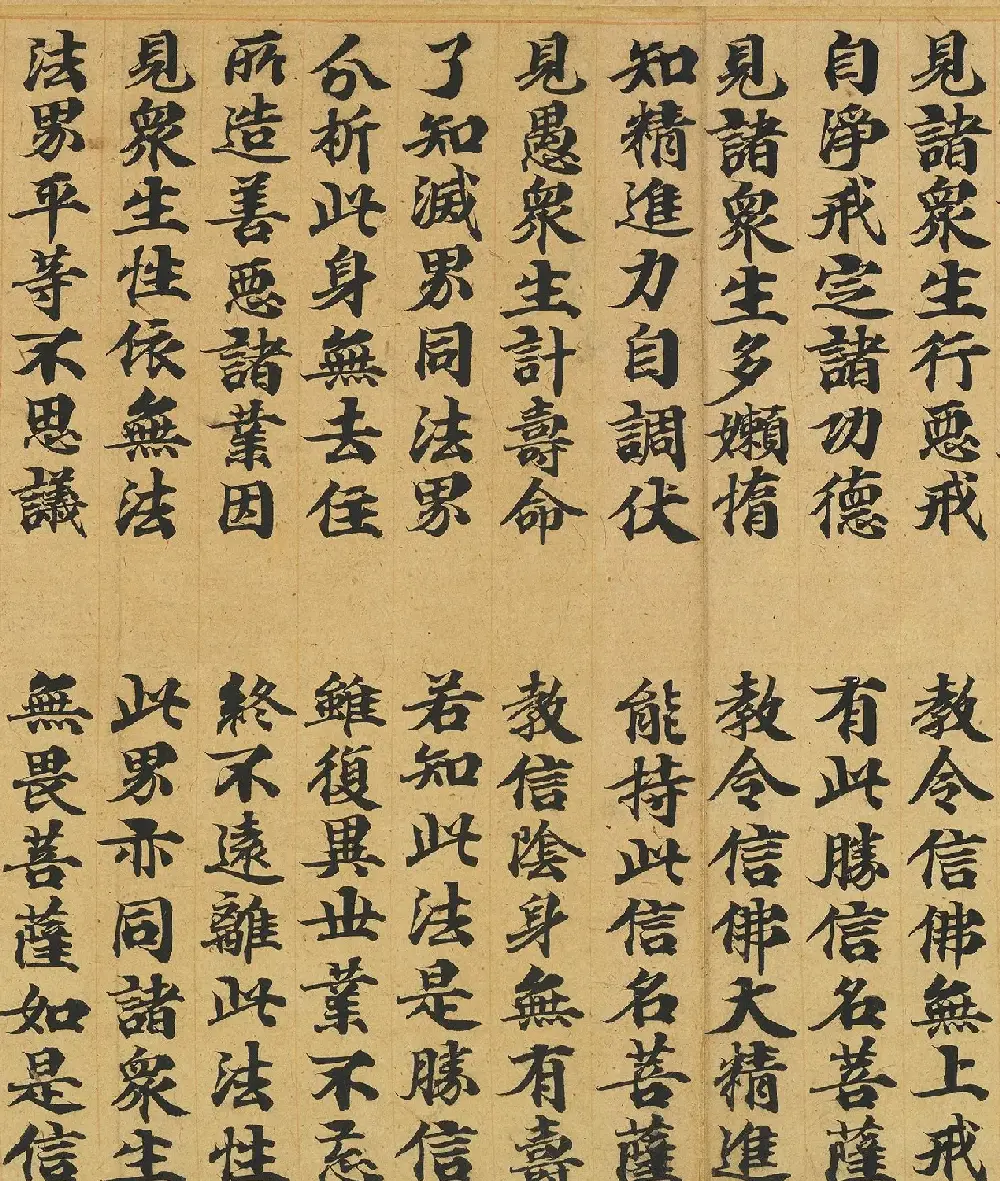 見諸衆生行惡戒　教令信佛無上戒
自淨戒定諸功德　有此勝信名菩薩
見諸衆生多嬾惰　教令信佛大精進
知精進力自調伏　能持此信名菩薩
見愚衆生計壽命　教信陰身無有壽
了知滅界同法界　若知此法是勝信
分析此身無去住　雖復異世業不忘
所造善惡諸業因　終不遠離此法性
見衆生性依無法　此界亦同諸衆生
法界平等不思議　無畏菩薩如是信